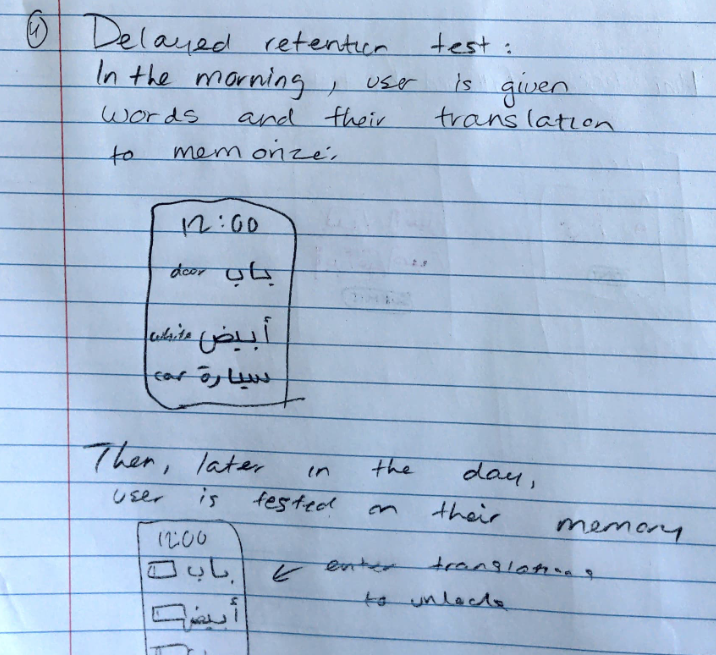 4 Delayed retention test:
In the morning, user is given
words and their translation
to memorize.
12:00
door باب
white أبيض
car سيارة
Then, later in the day,
user is tested on their memory
12:00
باب ← enter translations
to unlock
أبيض